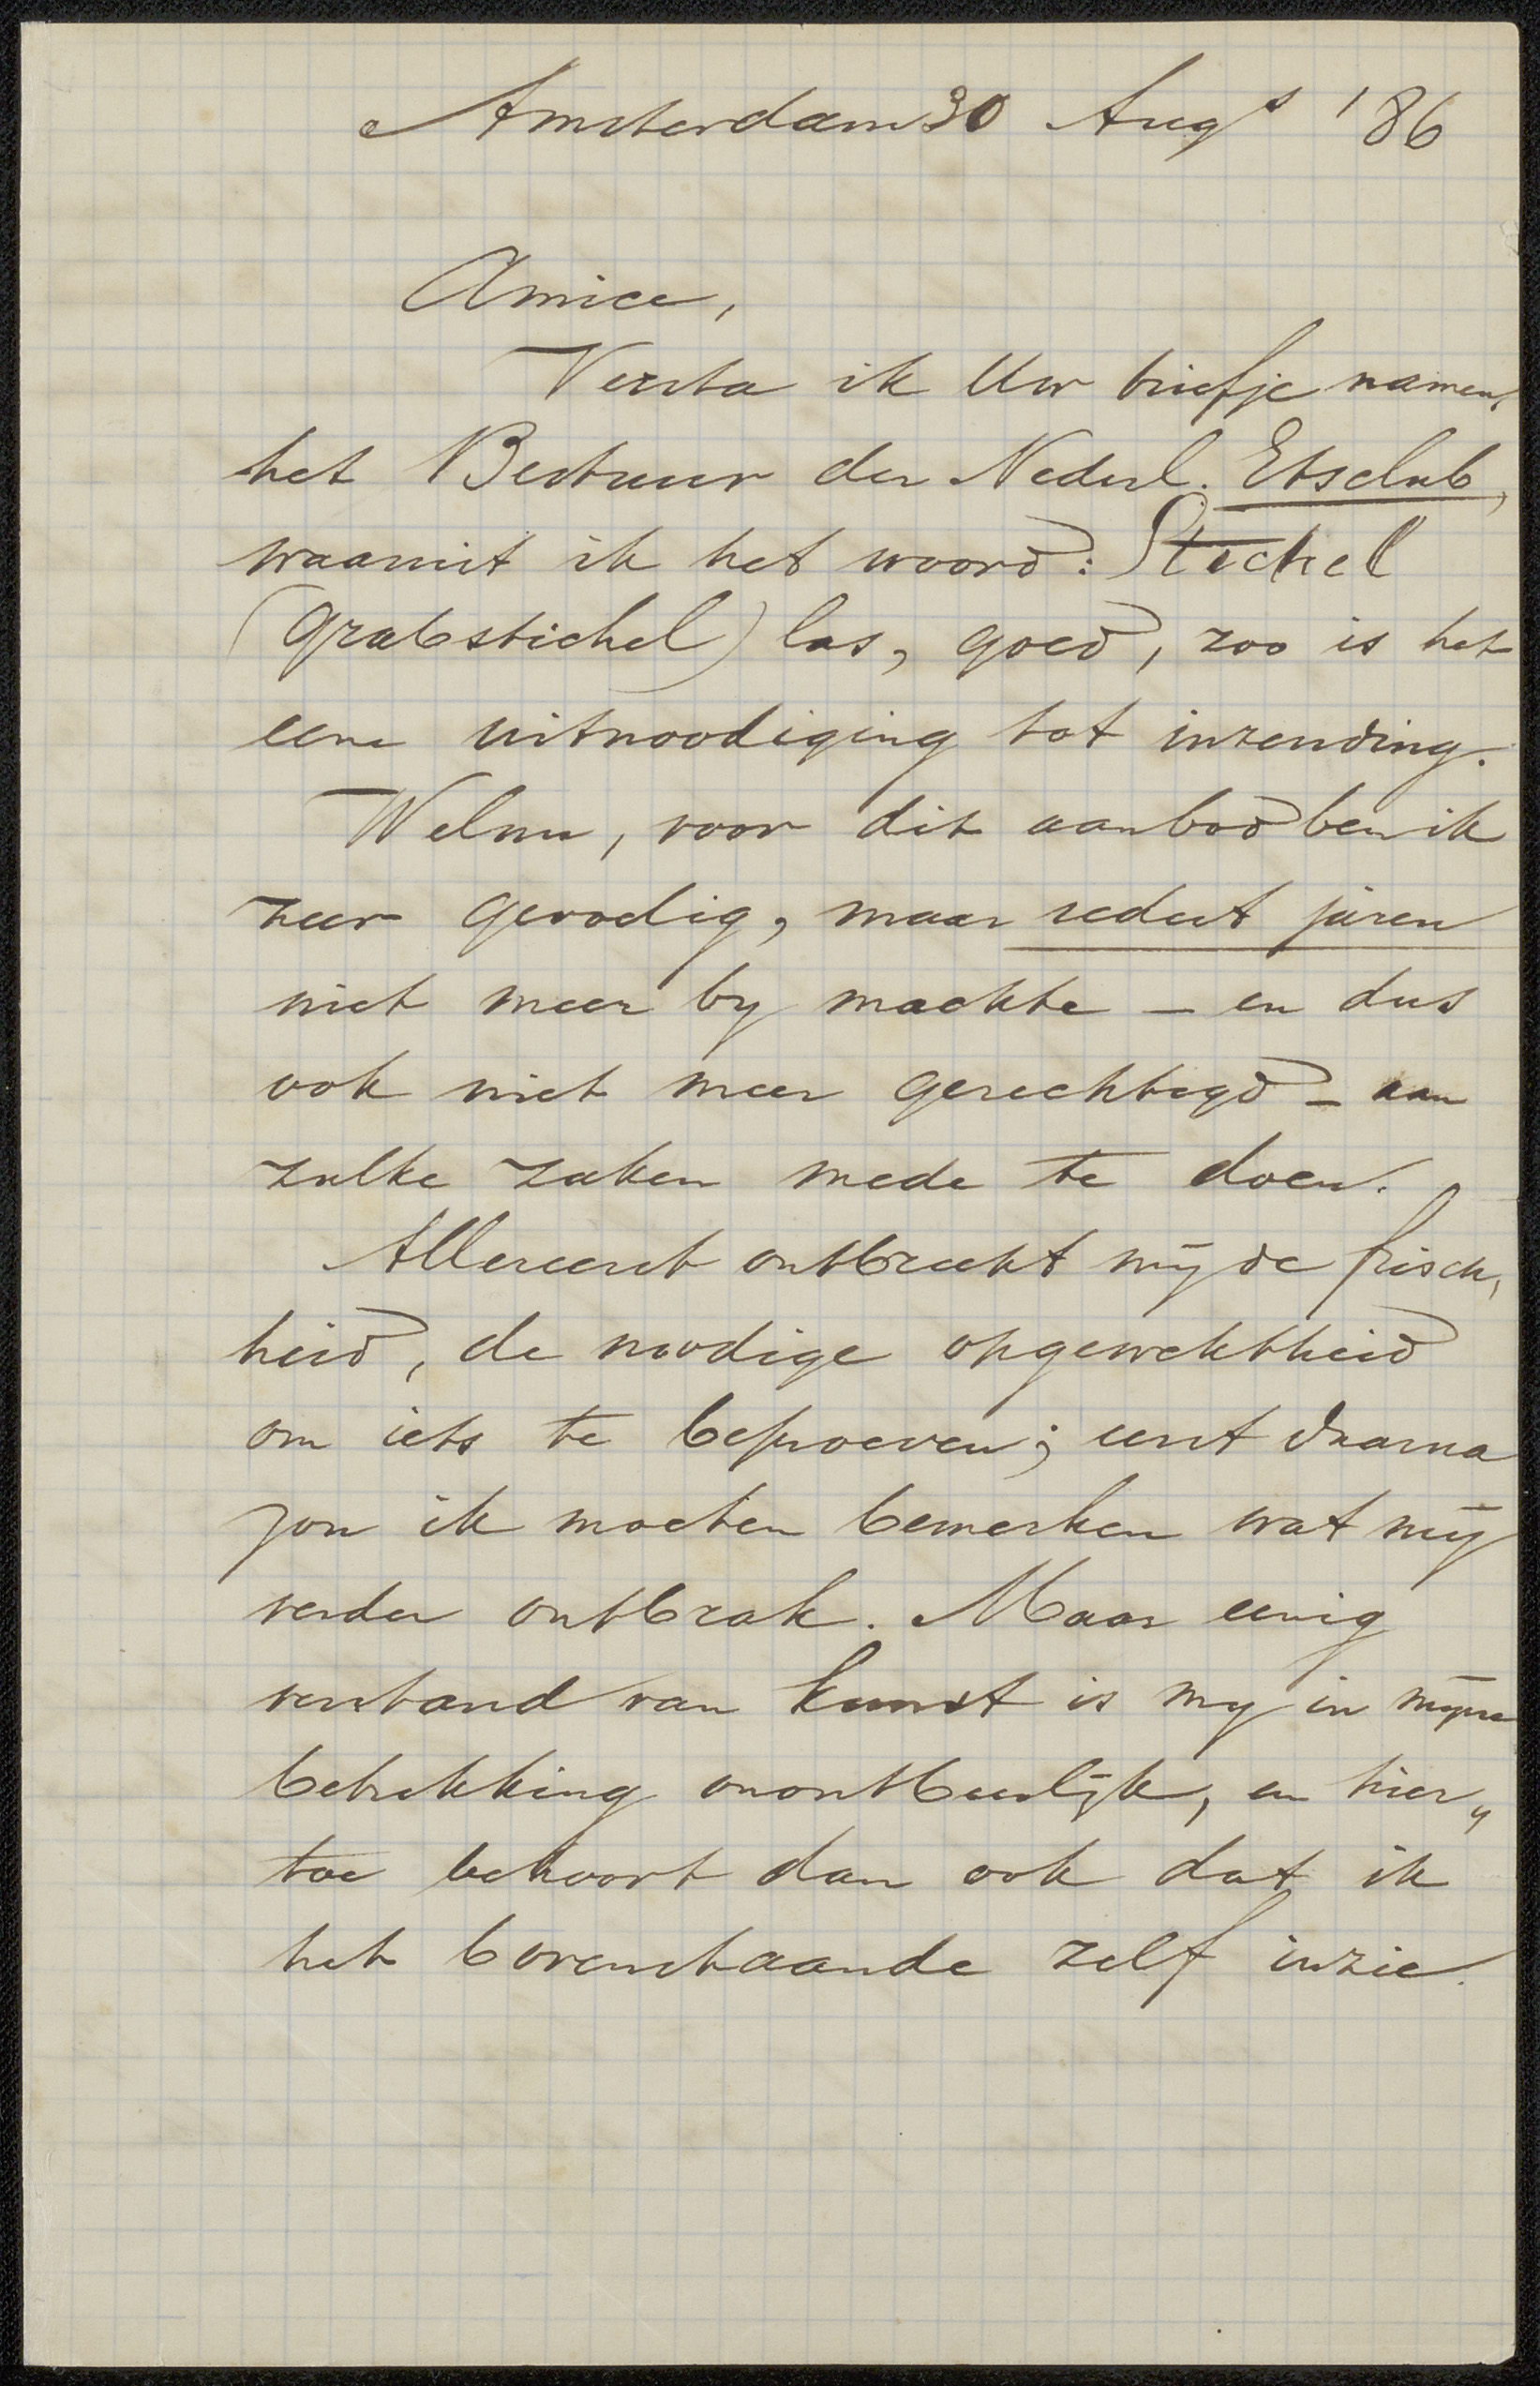 Amsterdam 30 Augs '86
Amice,
Versta ik Uw briefje namens
het Bestuur der Nederl. Etsclub,
waaruit ik het woord: Stichel
(Grabstichel) las, goed, zoo is het
eene uitnoodiging tot inzending.
Welnu, voor dit aanbod ben ik
zeer gevoelig, maar sedert jaren
niet meer by machte - en dus
ook niet meer gerechtigd - aan
zulke zaken mede te doen.
Allereerst ontbreekt mij de frisch,
heid, de noodige opgewektheid
om iets te beproeven; eerst daarna
zou ik moeten bemerken wat mij
verder ontbrak. Maar eenig
verstand van kunst is my in mijne
betrekking onontbeerlijk, en hier„
toe behoort dan ook dat ik
het bovenstaande zelf inzie.